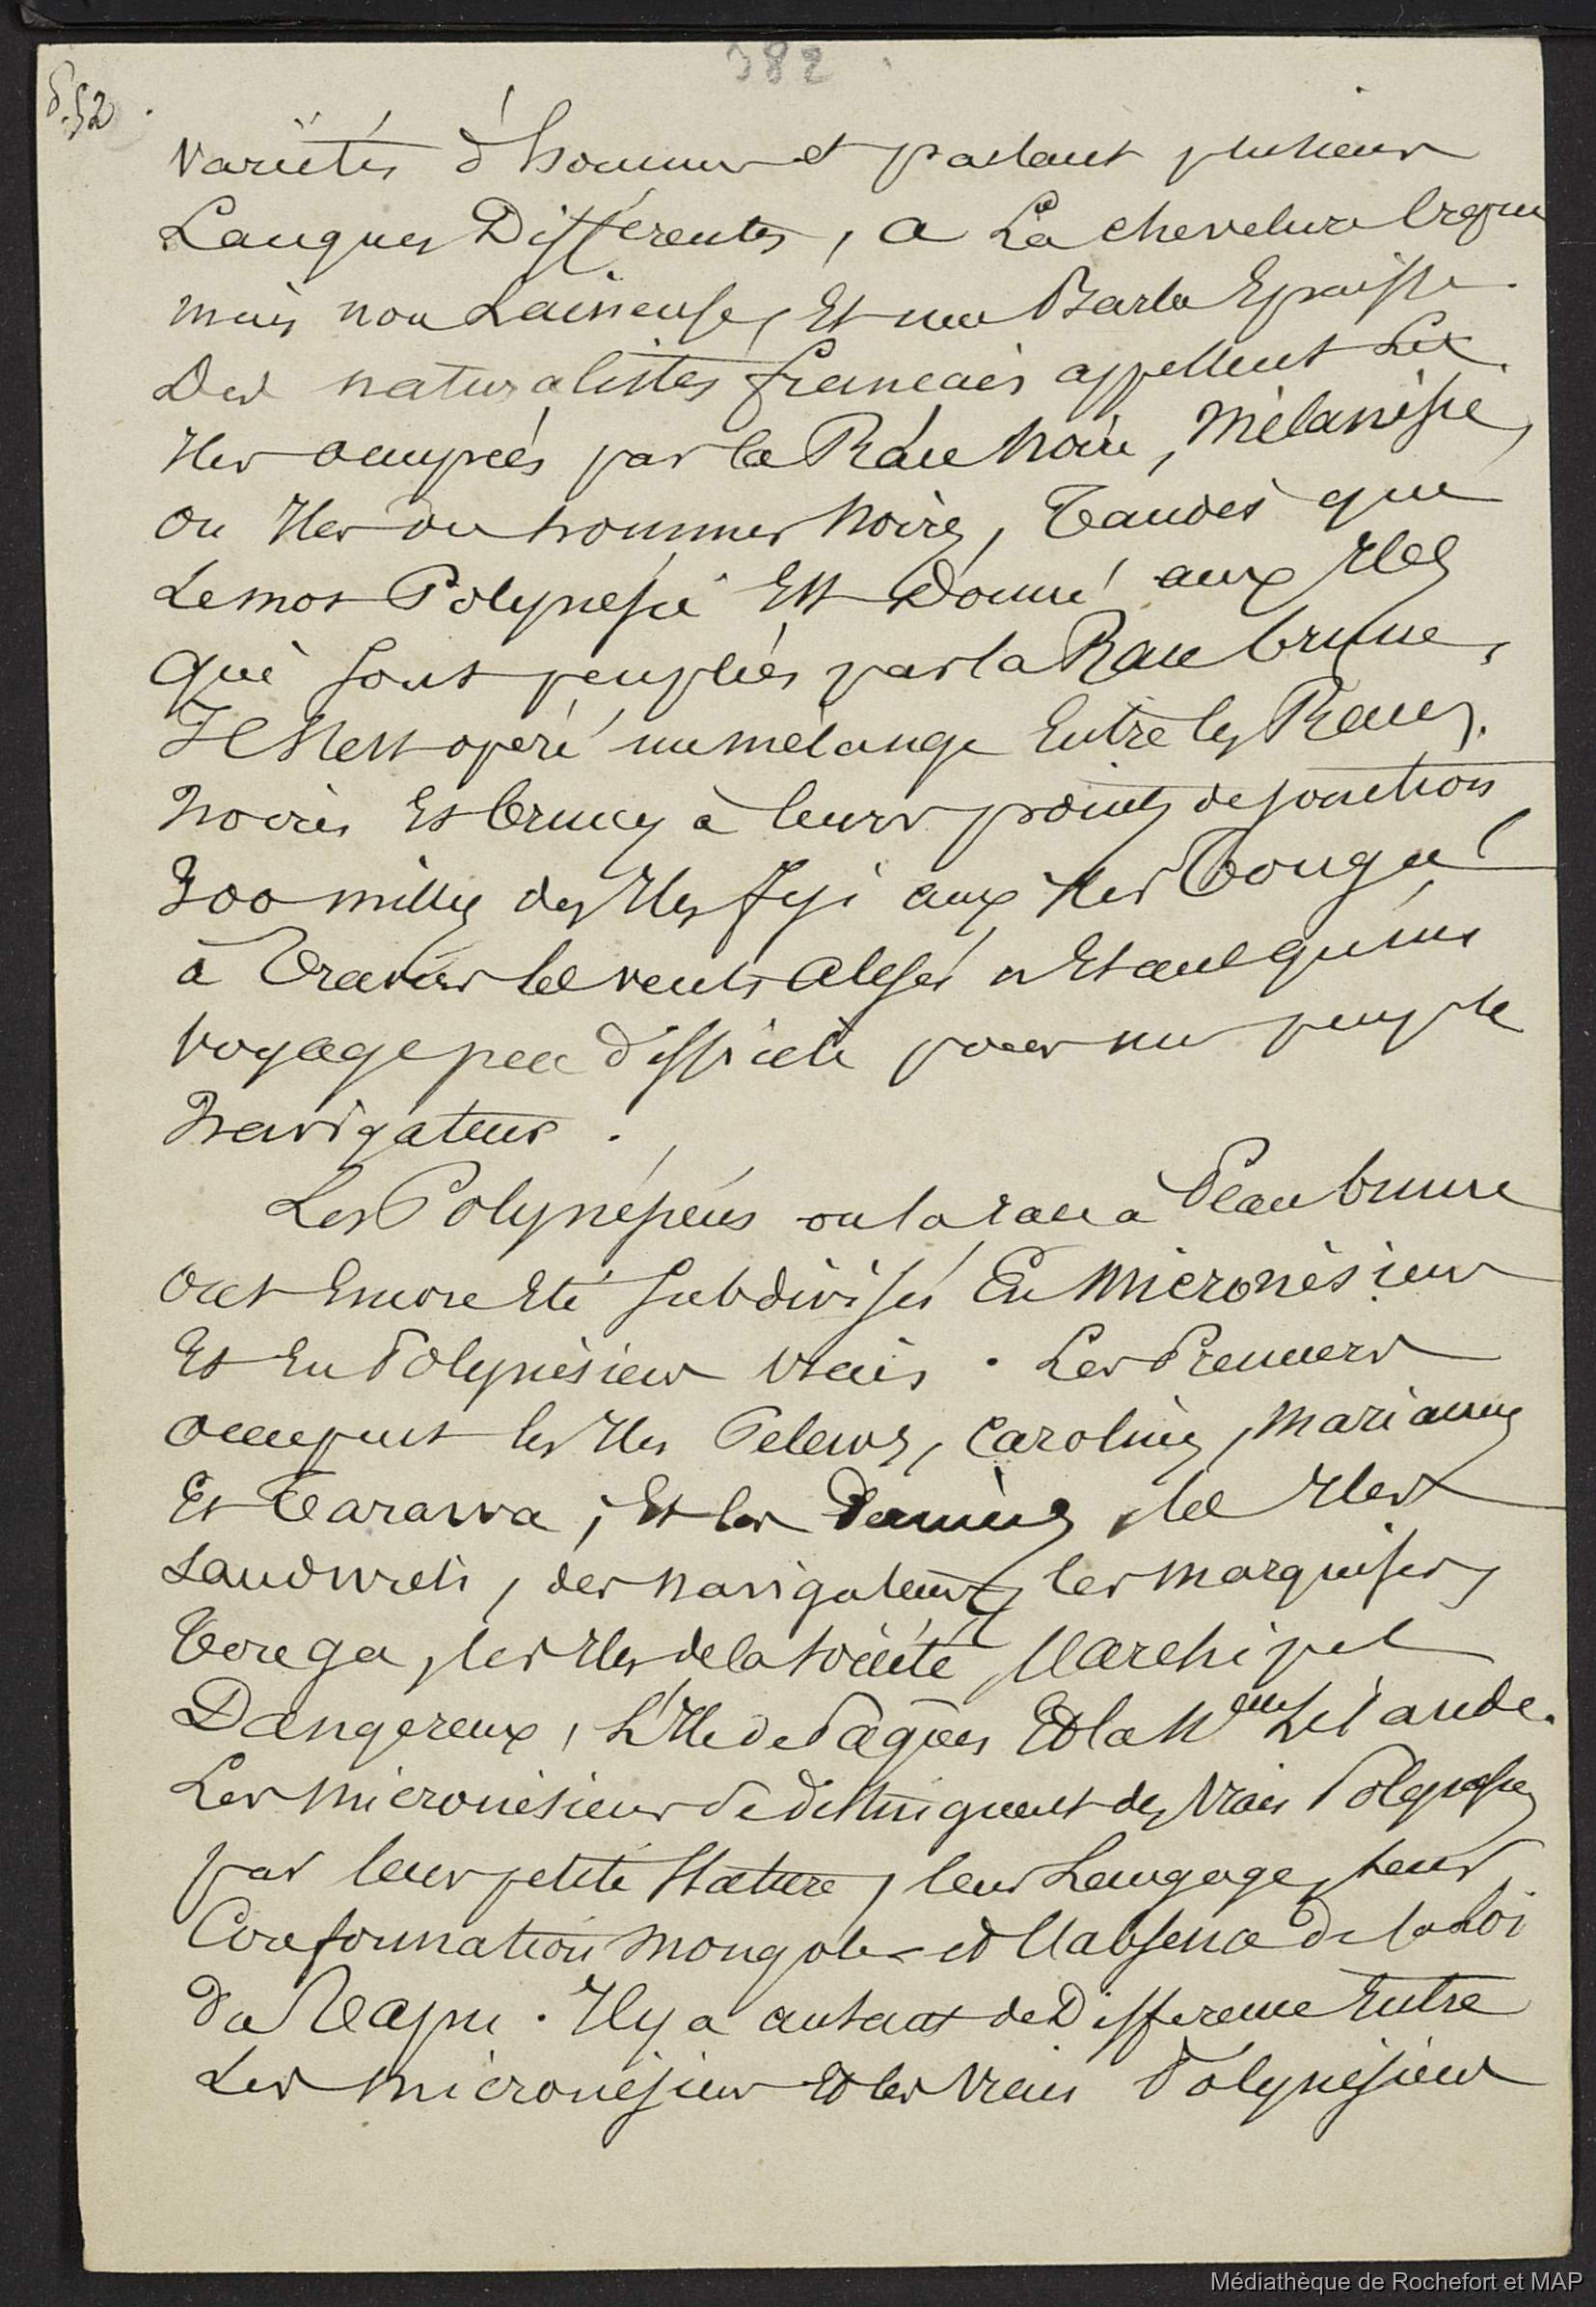 382
variétés d'hommes et parlant plusieurs
Langues Différentes, a La chevelure
mais non Laineuse, Et une Barbe Epaisse.
Des naturalistes français appellent Les
Iles occupées par la Race noire, Mélanisie,
ou Iles ou hommes noirs, Tandis que
Le mot Polynesie Est Donné aux Iles
qui sont peuplées par la Race brune,
Il s'est opéré un mélange Entre les Races
noires Et brunes à leurs points de jonction
300 milles des Iles Fiji aux Iles Tonga
à Travers les vents alisés n'Etant qu'un
voyage peu difficile pour un peuple
navigateur.
Les Polynésiens ou la race à Peau brune
ont Encore Eté subdivisés En Micronésiens
Et En Polynésiens vrais. Les Premiers
occupent les Iles Pelews, Carolines, Mariannes
Et Tarawa, Et les Derniers, les Iles
Sandwich, des navigateurs, les marquises,
Tonga, les Iles de la Société, l'archipel
Dangereux, L'Ile de Pâques Et la Nelle Zélande.
Les Micronésiens se distinguent des vrais Polynesiens
par leur petite stature, leur Langage, leur
Conformation mongole et l'absence de la Loi
du Tapu. Il y a autant de Différence Entre
Les Micronésiens Et les vrais Polynésiens
Médiathèque de Rochefort et MAP